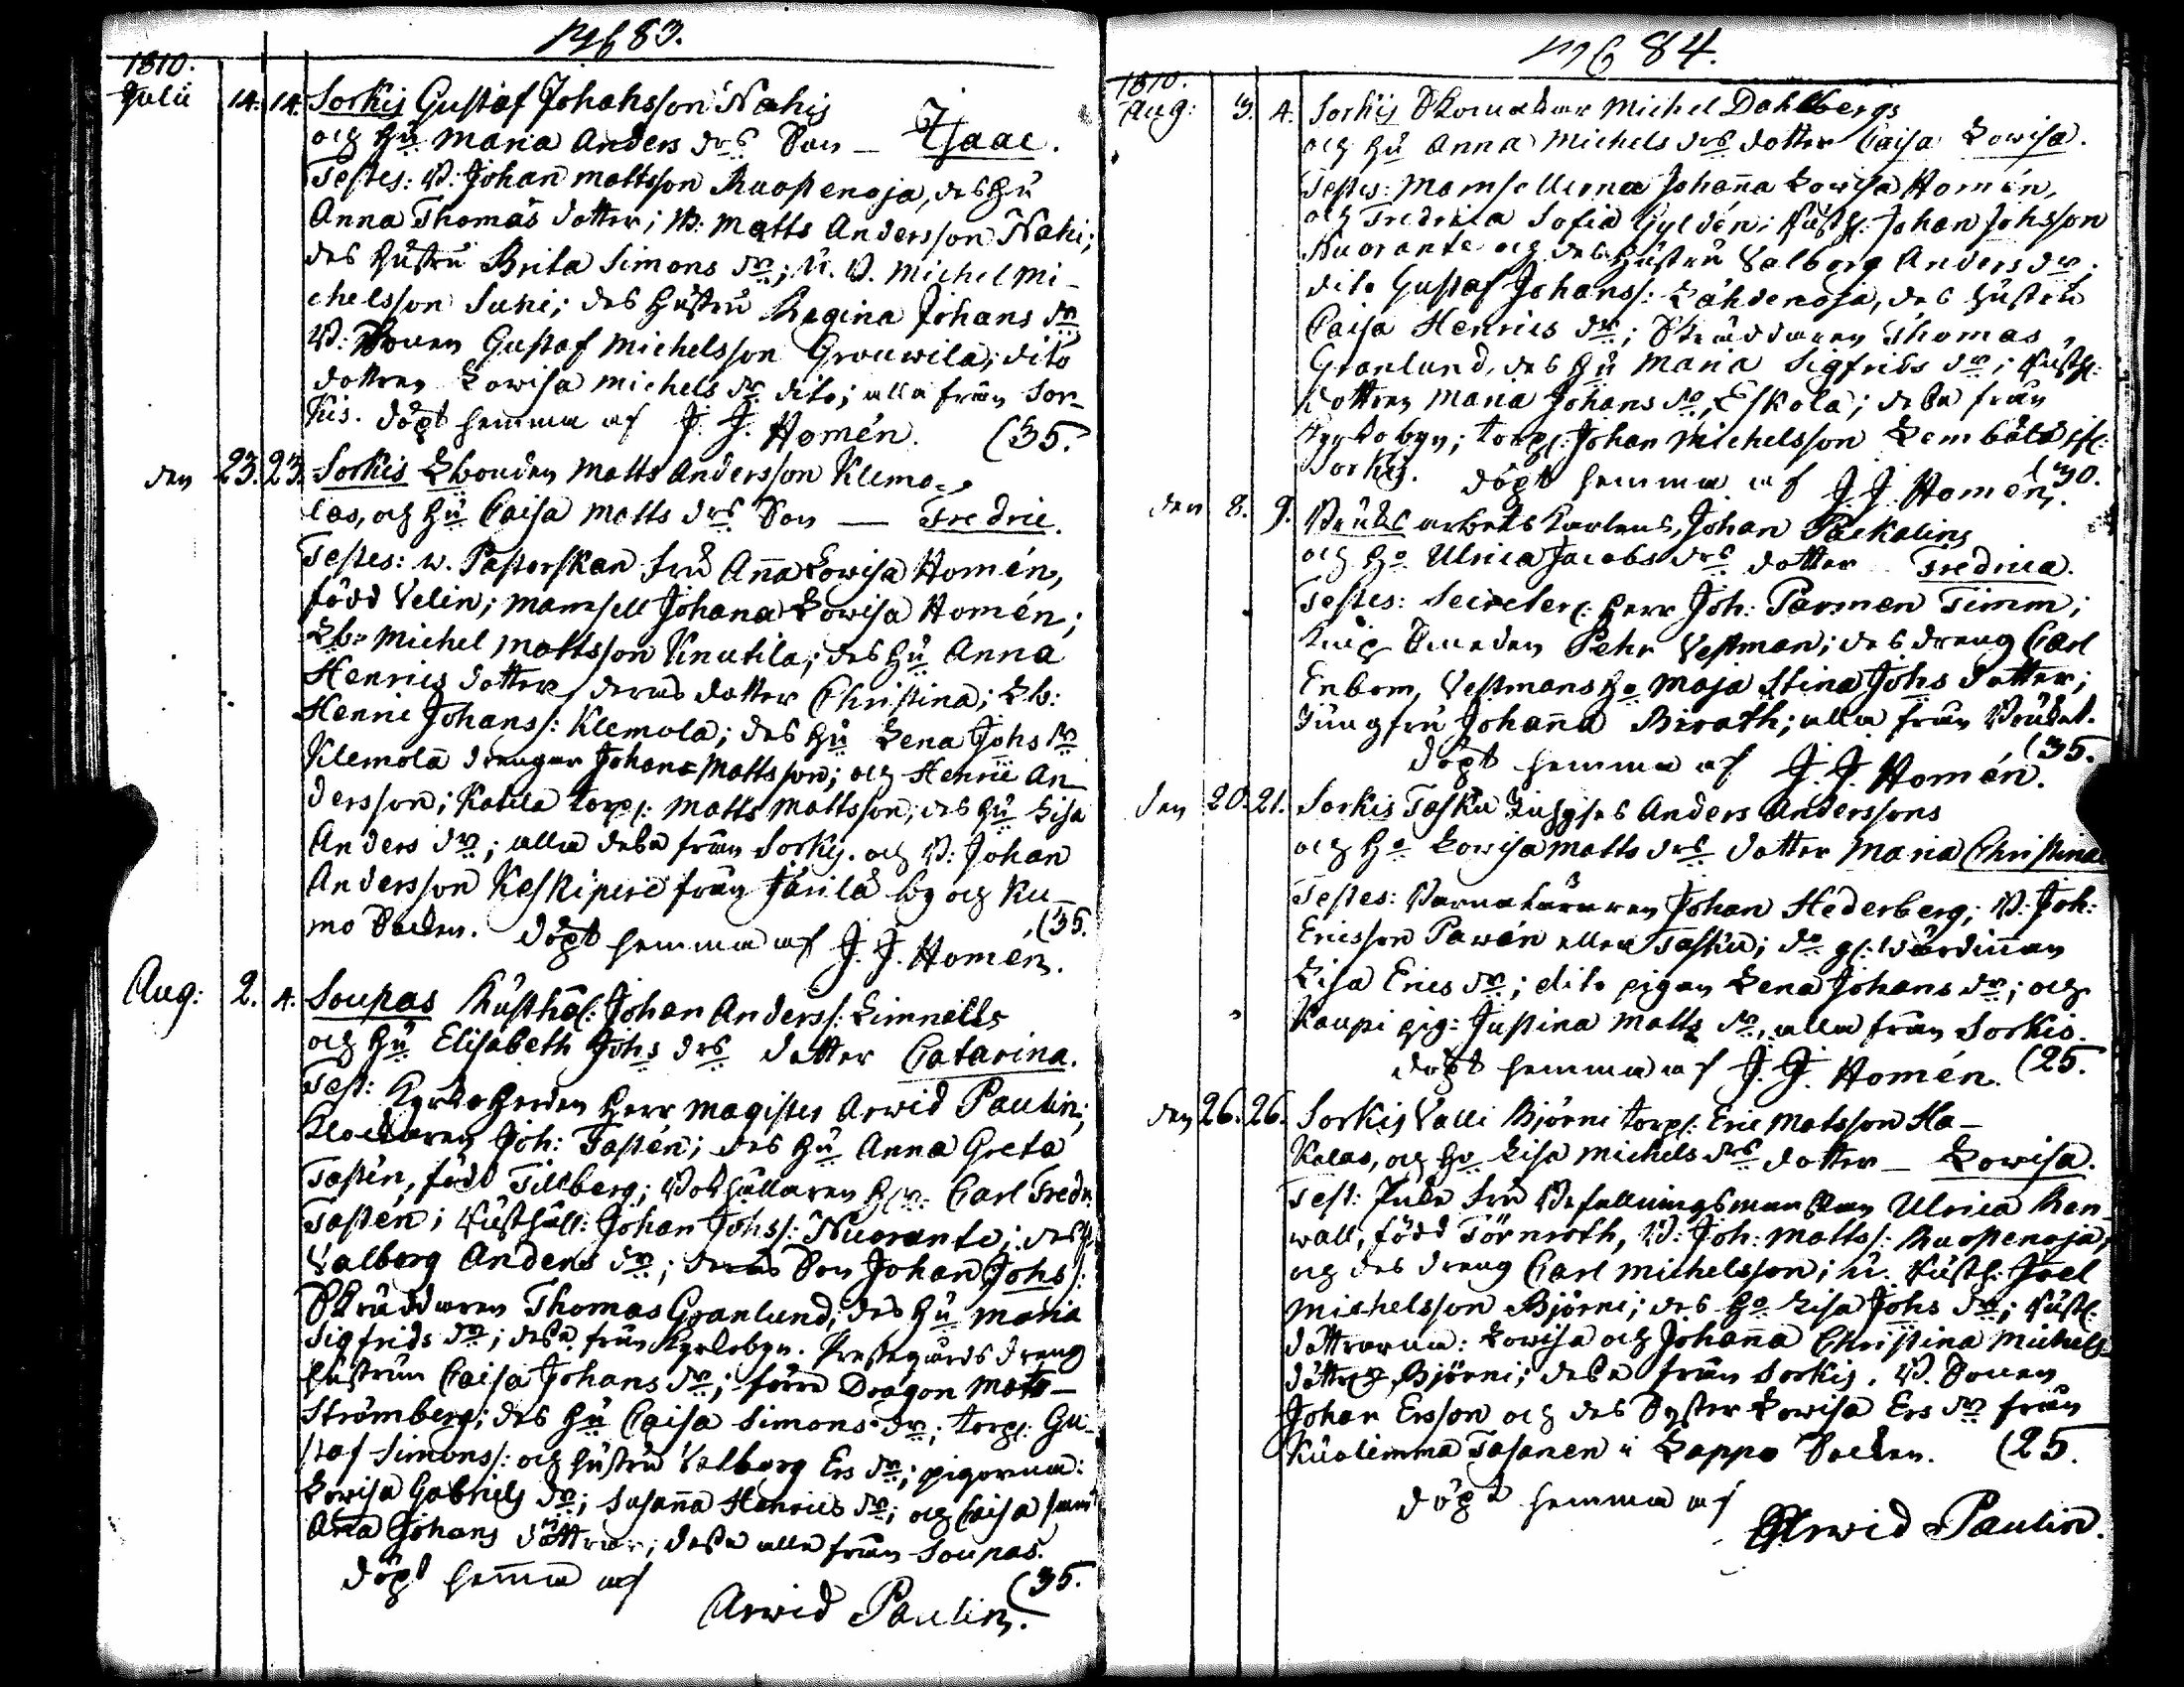 pag 83.
1810.
Julii 14. 14. Sorkis Gustaf Johansson Nahis
och Hu Maria Anders drs Son — Isaac.
Testes: B: Johan Mattsson Ruospenoja, des Hu
Anna Thomas dotter; B. Matts Andersson Nahi;
des hustru Brita Simons dr; U. B. Michel Mi-
chelsson Suni; des hustru Regina Johans dr
B: Sonen Gustaf Michelsson Grouwila; dito
dottren Lowisa Michels dr dito; alla från Sor-
kis. döpt hemma af J. J. Homén. (35.
den 23. 23. Sorkis Lbonden Matts Andersson Klemo-
las, och Hu Caisa Matts drs Son — Fredric.
Testes: w. Pastorskan Fru Anna Lowisa Homén,
född Velin; Mamsell Johana Lowisa Homén;
Lb. Michel Mattsson Knutila; des Hu Anna
Henrics dotter, deras dotter Christina; Lb:
Henric Johanss: Klemola; des Hu Lena Johs dr
Klemola drengar Johan Mattsson; och Henric An-
dersson; Katila torp: Matts Mattsson; des Hu Lisa
Anders dr; alla dessa från Sorkis. och B: Johan
Andersson Keskipere från Järilä by och Ku-
mo Socken. döpt hemma af J. J. Homén. (35.
Aug: 2. 4. Soupas Rusthål: Johan Anderss: Limnells
och Hu Elisabeth Johs drs dotter Catarina.
Test: Kyrkoherden Herr Magister Arwid Paulin;
Klockaren Joh: Tastén; des Hu Anna Greta
Tastén, född Tillberg; Bokhållaren Hr Carl Fredr
Tastén; Rusthåll: Johan Johss: Nuorante; des h
Valborg Anders dr; deras Son Johan Johs:
Skräddaren Thomas Granlund; des Hu Maria
Sigfrids dr; dessa från Kyrkobyn. Prestegårds dreng
hustrun Caisa Johans dr; förre Dragon Mats
Strömberg; des Hu Caisa Simons dr; torp: Gu-
staf Simons: och hustru Valborg Ers dr; pigorna:
Lowisa Gabriels dr; Susanna Henrics dr; och Caisa samt
Anna Johans döttrar; dessa alla från Soupas.
döpt hemma af (35.
Arwid Paulin.
pag 84.
1810.
Aug: 3. 4. Sorkis Skomakar Michel Dahlbergs
och Hu Anna Michels drs dotter Caisa Lowisa.
Testes: Mamsellerna Johanna Lowisa Homén,
och Fredrica Sofia Gyldén; Rusth: Johan Johsson
Nuorante och des hustru Valborg Anders dr;
dito Gustaf Johanss: Lähdenoja, des hustru
Caisa Henrics dr; Skräddaren Thomas
Granlund, des Hu Maria Sigfrids dr; Rusth:
dottren Maria Johans dr, Eskola; dessa från
Kyrkobyn; torp: Johan Michelsson
Sorkis. döpt hemma af J. J. Homén. (30.
den 8. 9. Bruks arbets Karlens, Johan Packalins
och Ho Ulrica Jacobs drs dotter Fredrica.
Testes: Secreter: Herr Joh: Parmen Timm;
Knip Smeden Pehr Vestman; des dreng Carl
Enbom, Vestmans Ho Maja Stina Johs dotter;
Jungfru Johanna Birath; alla från Bruket.
döpt hemma af J. J. Homén. (35.
den 20. 21. Sorkis Taska Anders Anderssons
och Ho Lowisa Matts drs dotter Maria Christina
Testes: Johan Hederberg; B: Joh:
Ericsson Pawén eller Taska; do gl: Värdinnan
Lisa Erics dr; dito pigan Lena Johans dr; och
Kaupi pig: Justina Matts dr, alla från Sorkis.
döpt hemma af J. J. Homén. (25.
den 26. 26. Sorkis Valli Björni torp: Eric Matsson Ha-
kalas, och Ho Lisa Michels drs dotter — Lowisa.
Test: Fru Befallningsmanskan Ulrica Ren-
wall, född Törnroth, B: Joh: Matts: Ruospenoja,
och des dreng Carl Michelsson; U. Rusth: Joel
Michelsson Björni; des Ho Lisa Johs dr; Rusth:
dottrarna: Lowisa och Johanna Christina Michels-
döttrar Björni; dessa från Sorkis. B. Sonen
Johan Ersson och des Syster Lowisa Ers dr från
Kuolimma Tasanen i Lappo Socken. (25.
döpt hemma af
Arwid Paulin.